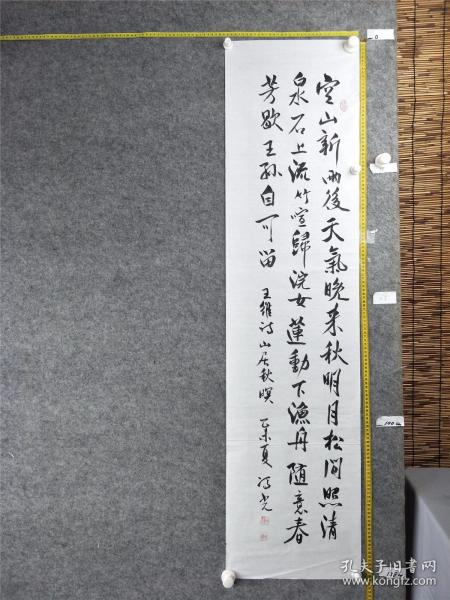 空山新雨後天氣晚来秋明月松间照清
泉石上流竹喧歸浣女蓮動下漁舟随意春
芳歇王孙自可留 王維诗山居秋暝 乙未夏
0
孔夫子旧书网
www.kongfz.com